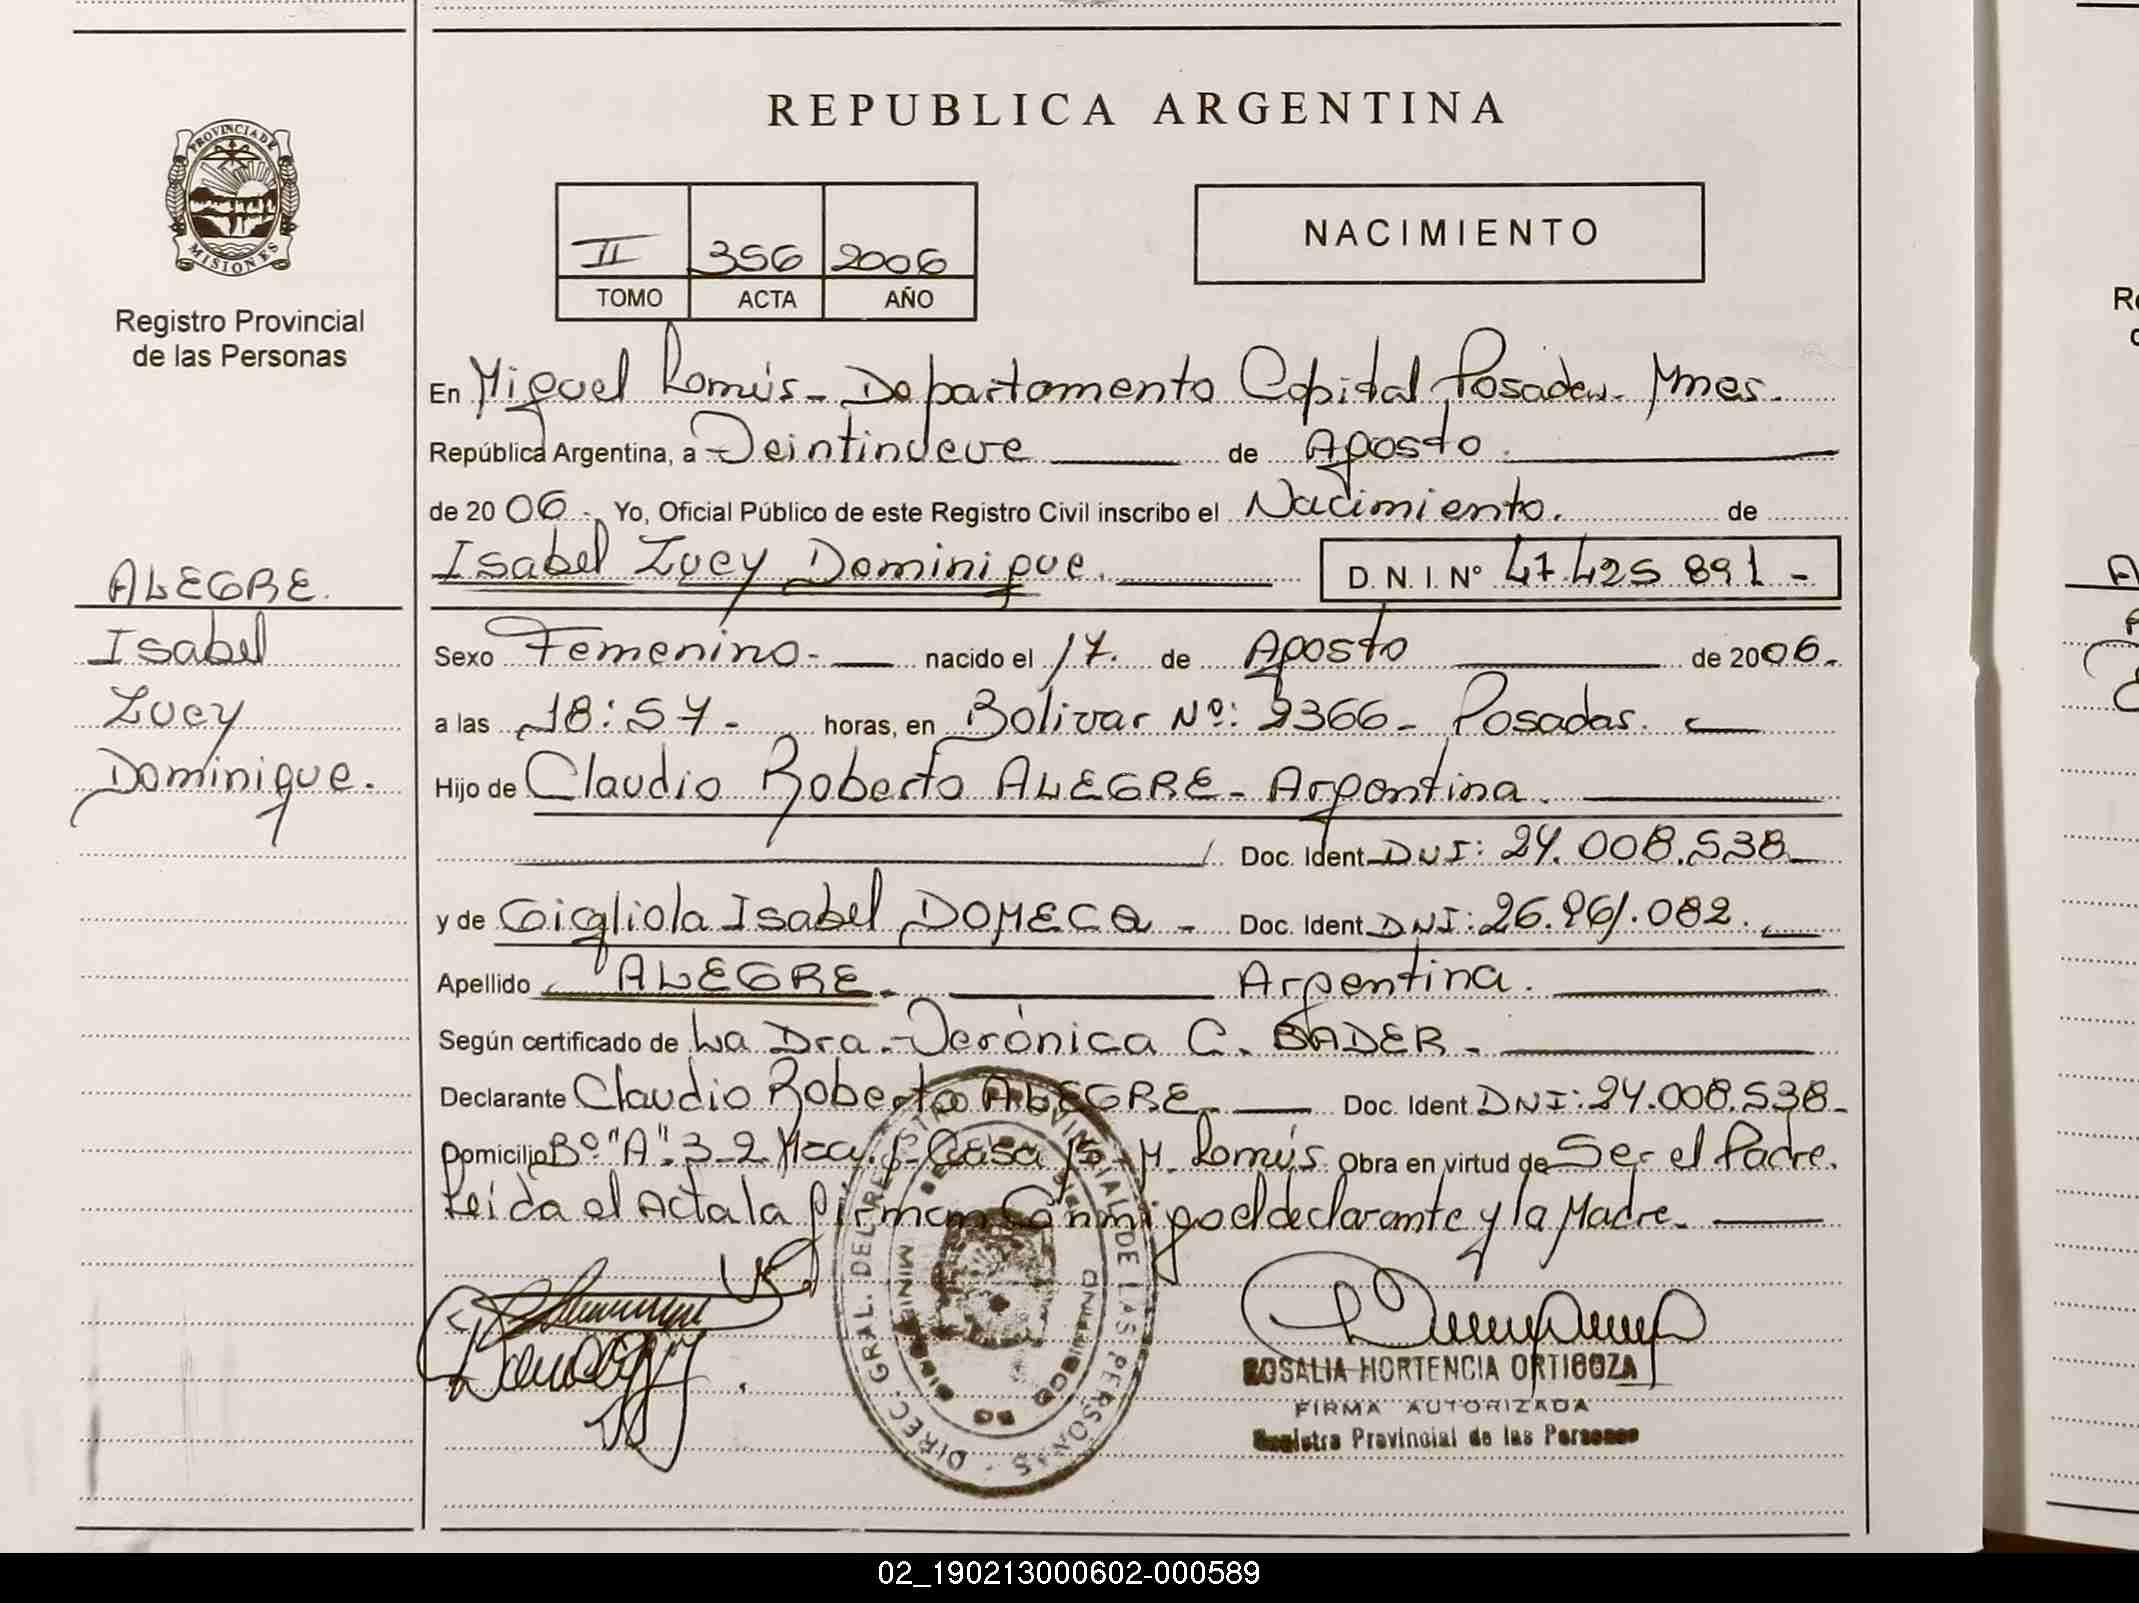 REPUBLICA ARGENTINA
PROVINCIA DE
MISIONES
Registro Provincial
de las Personas
II 356 2006
TOMO ACTA AÑO
NACIMIENTO
En Miguel Lanús - Departamento Capital Posadas - Mnes.
República Argentina, a Veintinueve de Agosto.
de 2006. Yo, Oficial Público de este Registro Civil inscribo el Nacimiento. de
Isabel Lucy Dominique. D. N. I. Nº 47.425 891 -
ALEGRE.
Isabel
Lucy
Dominique.
Sexo Femenino - nacido el 17. de Agosto de 2006.
a las 18:57 - horas, en Bolivar Nº: 2366 - Posadas.
Hijo de Claudio Roberto ALEGRE - Argentina.
Doc. Ident. DNI: 24.008.538
y de Gigliola Isabel DOMECQ - Doc. Ident. DNI: 26.961.082.
Apellido ALEGRE. Argentina.
Según certificado de La Dra. Verónica C. BADER -
Declarante Claudio Roberto ALEGRE. Doc. Ident. DNI: 24.008.538 -
Domicilio Bº "A" 3-2 Casa 15 - M. Lanús. Obra en virtud de Ser el Padre.
Leída el Acta la firman Conmigo el declarante y la Madre.
DIREC. GRAL. DEL REGISTRO PROVINCIAL DE LAS PERSONAS
ROSALIA HORTENCIA ORTIGOZA
FIRMA AUTORIZADA
Registro Provincial de las Personas
02_190213000602-000589